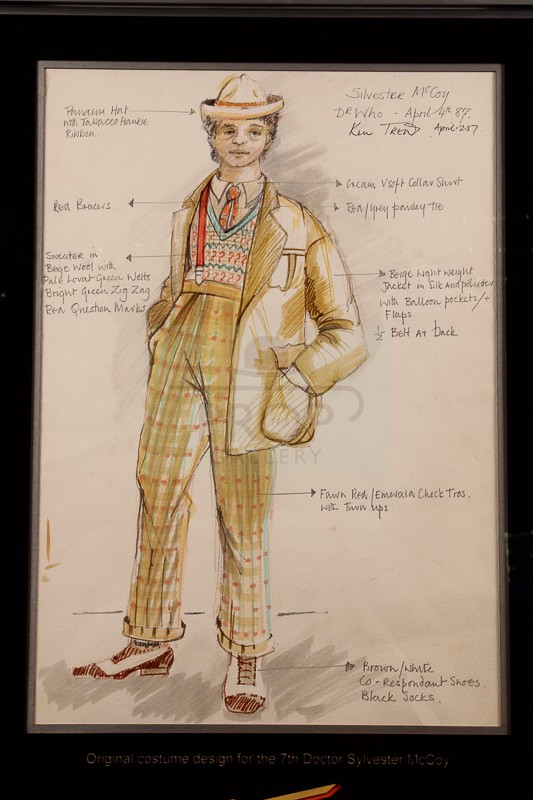 Silvester McCoy
Dr Who - April 4th 87.
Ken Trew April-287.
Panama Hat
with Tabacco Hankie
Ribbon.
Red Braces.
Sweater in
Beige Wool with
Pale Lovat Green Welts
Bright Green Zig Zag
Red Question Marks
Cream V Soft Collar Shirt
Red/grey paisley tie.
Beige Light Weight
Jacket in Silk and polyester
with Balloon pockets/+
Flaps.
½ Belt at back
Fawn Red/Emerald Check Tros.
with Turn ups.
Brown/White
Co-Respondant Shoes.
Black Socks.
PROP
GALLERY
Original costume design for the 7th Doctor Sylvester McCoy